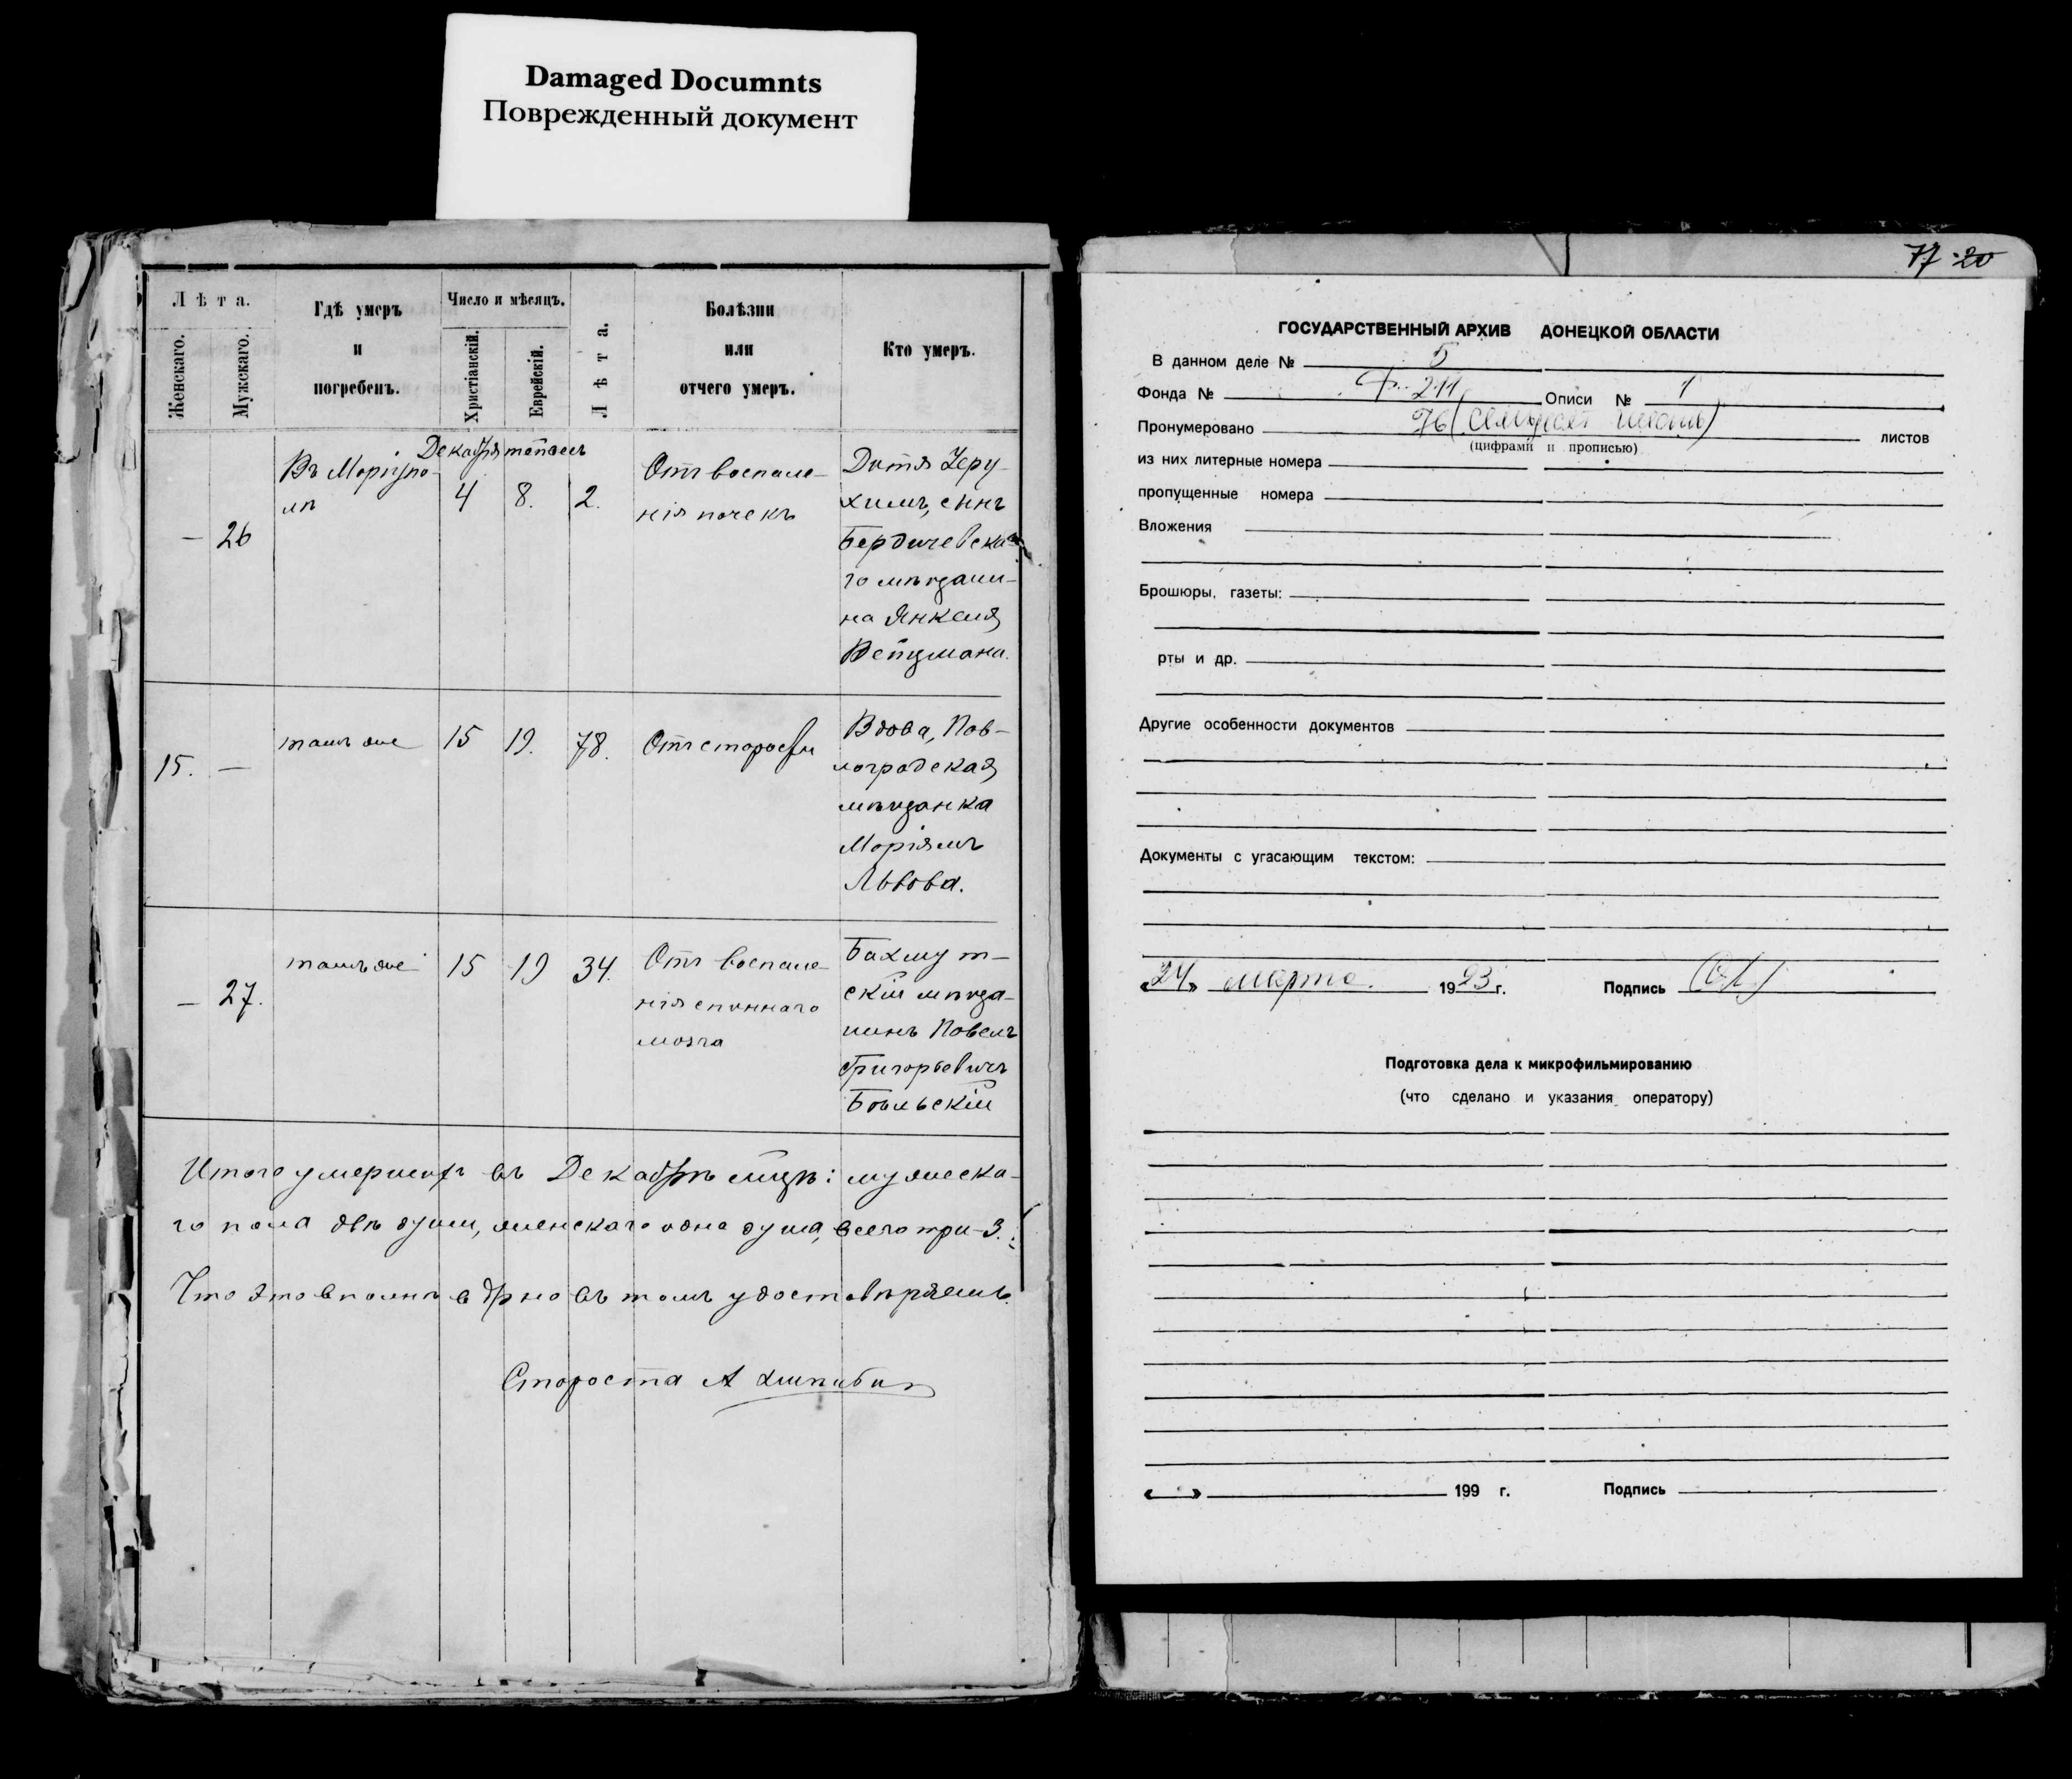 Damaged Documnts
Поврежденный документ
Лѣта.
Женскаго.
Мужскаго.
Гдѣ умеръ
и
погребенъ.
Число и мѣсяцъ.
Христіанскій.
Еврейскій.
Лѣта.
Болѣзни
или
отчего умеръ.
Кто умеръ.
Декабря
— 26
Въ Маріупо-
лѣ
4 8. 2.
Отъ воспале-
нія почекъ
Дитя Іеру-
химъ, сынъ
Бердичевска-
го мѣщани-
на Янкеля
Вейцмана.
15. —
тамъ же
15 19. 78.
Отъ старости
Вдова, Пав-
лоградская
мѣщанка
Маріямъ
Львова.
— 27.
тамъ же
15 19 34.
Отъ воспале-
нія спиннаго
мозга
Бахмут-
скій мѣща-
нинъ Павелъ
Григорьевичъ
Итого умершихъ въ Декабрѣ мцѣ: мужеска-
го пола двѣ души, женскаго одна душа, всего три-3.
Что это вполнѣ вѣрно въ томъ удостовѣряемъ.
Староста А
77 20
ГОСУДАРСТВЕННЫЙ АРХИВ ДОНЕЦКОЙ ОБЛАСТИ
В данном деле № 5
Фонда № Ф. 211 Описи № 1
Пронумеровано 76 (семьдесят шесть) листов
(цифрами и прописью)
из них литерные номера
пропущенные номера
Вложения
Брошюры, газеты:
рты и др.
Другие особенности документов
Документы с угасающим текстом:
«24» марта 1993 г. Подпись
Подготовка дела к микрофильмированию
(что сделано и указания оператору)
« » 199 г. Подпись